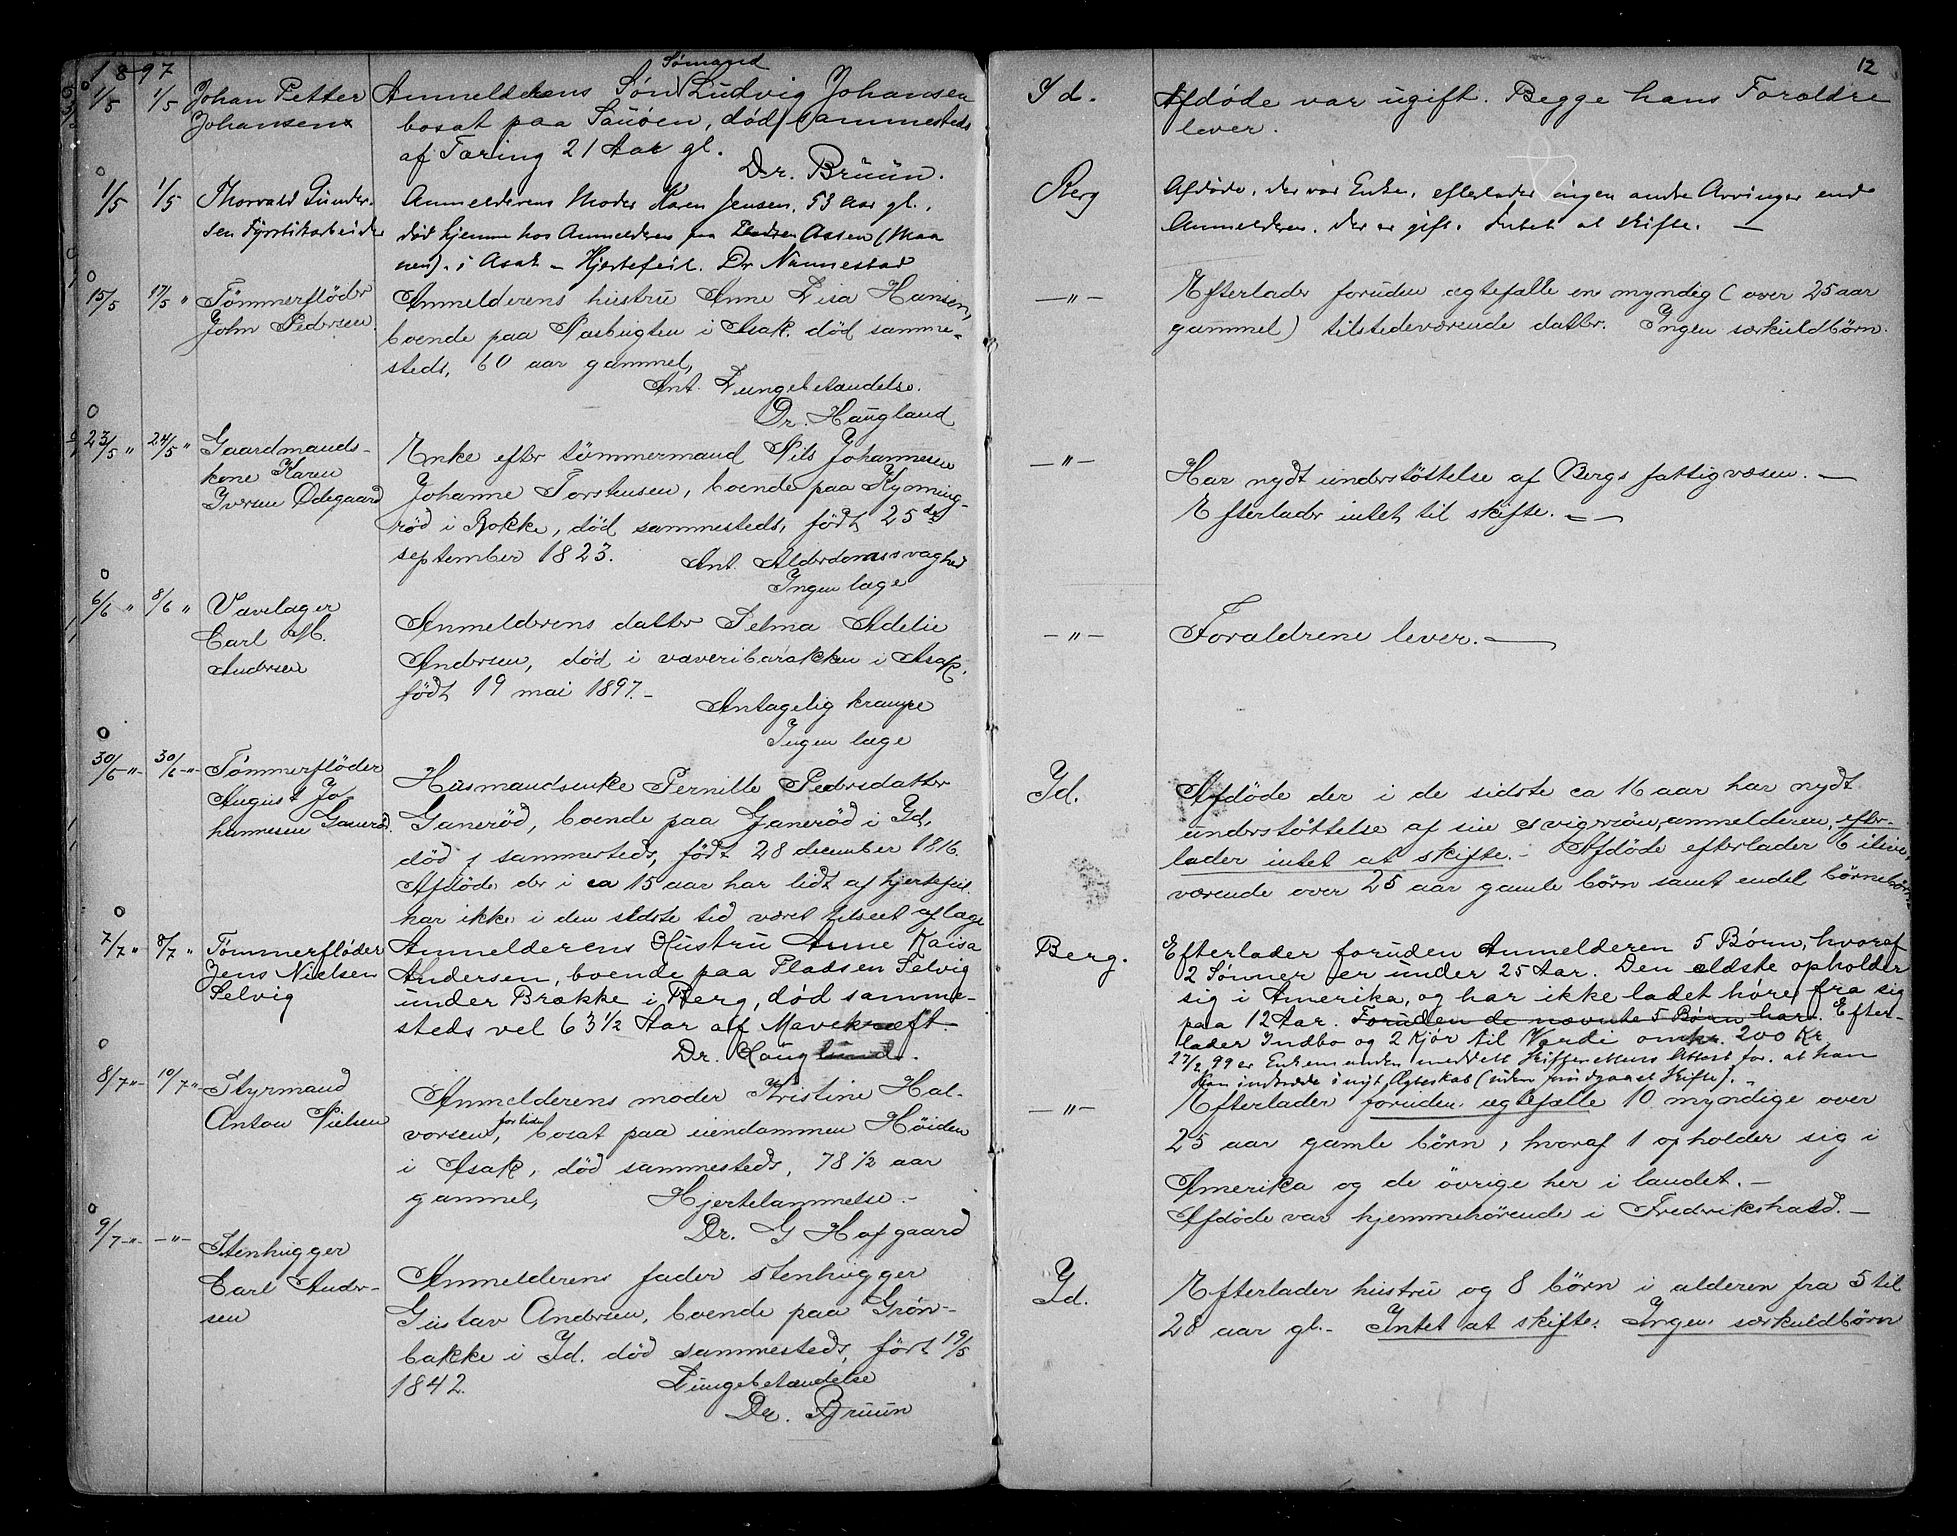 1897
12
1/5 1/5 Johan Petter
Johansen
Sømand
Anmelderens Søn Ludvig Johansen
bosat paa Sauøen, død sammesteds
af Tæring 21 Aar gl.
Dr. Bruun.
Id.
Afdøde var ugift. Begge hans Forældre
lever.
1/5 1/5 Thorvald Gunder-
sen Fyrstikarbeider
Anmelderens Moder Karen Jensen, 53 aar gl.,
død hjemme hos Anmelderen paa Asken (Maa
nen) i Asak – Hjertefeil. Dr Nannestad
Berg
Afdøde, der var Enke, efterlader ingen andre Arvinger end
Anmelderen, der er gift. Intet at skifte. —
15/5 17/5 " Tømmerfløder
John Pedersen.
Anmelderens hustru Anne Lisa Hansen,
boende paa Pasbugten i Asak, død samme-
steds, 60 aar gammel,
Ant. Lungebetændelse.
Dr. Haugland
—"—
Efterlader foruden ægtefælle en myndig (over 25 aar
gammel) tilstedeværende datter. Ingen særkuldbørn.
23/5 " 24/5 " Gaardmands-
kone Karen
Iversen Ødegaard
Enke efter tømmermand Nils Johannesen
Johanne Torshusen, boende paa Kjonning-
rød i Rokke, død sammesteds, født 25 de
september 1823.
Ant. Alderdomssvaghed
Ingen læge
—"—
Har nydt understøttelse af Bergs fattigvæsen. —
Efterlader intet til skifte. —
6/6 " 8/6 " Vævelager
Carl M.
Andersen
Anmelderens datter Selma Adelie
Andersen, død i væveribarakken i Asak,
født 19 mai 1897. –
Antagelig krampe
Ingen læge
—"—
Forældrene lever. —
30/6 -"- 30/6 -"- Tømmerfløder
August Jo
hannesen Ganerød.
Husmandsenke Pernille Pedersdatter
Ganerød, boende paa Ganerød i Id,
død sammesteds, født 28 december 1816.
Afdøde der i ca 15 aar har lidt af hjertefeil.
har ikke i den sidste tid været tilseet af læge
Id.
Afdøde der i de sidste ca 16 aar har nydt
understøttelse af sin svigersøn, anmelderen, efter-
lader intet at skifte. – Afdøde efterlader 6 ilive-
værende over 25 aar gamle børn samt endel børnebørn
7/7 " 8/7 " Tømmerfløder
Jens Nielsen
Selvig
Anmelderens Hustru Anne Kaisa
Andersen, boende paa Pladsen Selvig
under Brække i Berg, død samme-
steds vel 63 1/2 Aar af Mavekræft.
Dr. Haugland.
Berg.
Efterlader foruden Anmelderen 5 Børn, hvoraf
2 Sønner er under 25 Aar. Den ældste opholder
sig i Amerika, og har ikke ladet høre fra sig
paa 12 Aar. Foruden de nævnte 5 Børn har. Efter-
lader Indbo og 2 Kjør til Værdi omkr. 200 Kr.
27/2 99 er Enkemanden meddelt Skifterettens Attest for, at han
kan indtræde i nyt Ægteskab (uden foregaaet Skifte). –
8/7 -"- 10/7 -"- Styrmand
Anton Nielsen
Anmelderens moder Kristine Hal-
vorsen, for tiden bosat paa eiendommen Høiden
i Asak, død sammesteds, 78 1/2 aar
gammel,
Hjertelammelse. –
Dr. G Hofgaard
—"—
Efterlader foruden ægtefælle 10 myndige over
25 aar gamle børn, hvoraf 1 opholder sig i
Amerika og de øvrige her i landet. –
Afdøde var hjemmehørende i Fredrikshald. –
9/7 -"- -"- Stenhugger
Carl Ander-
sen
Anmelderens fader stenhugger
Gustav Andersen, boende paa Grøn-
bakke i Id. død sammesteds, født 19/5
1842.
Lungebetændelse
Dr. Bruun
Id.
Efterlader hustru og 8 børn i alderen fra 5 til
28 aar gl. – Intet at skifte. Ingen særkuldbørn